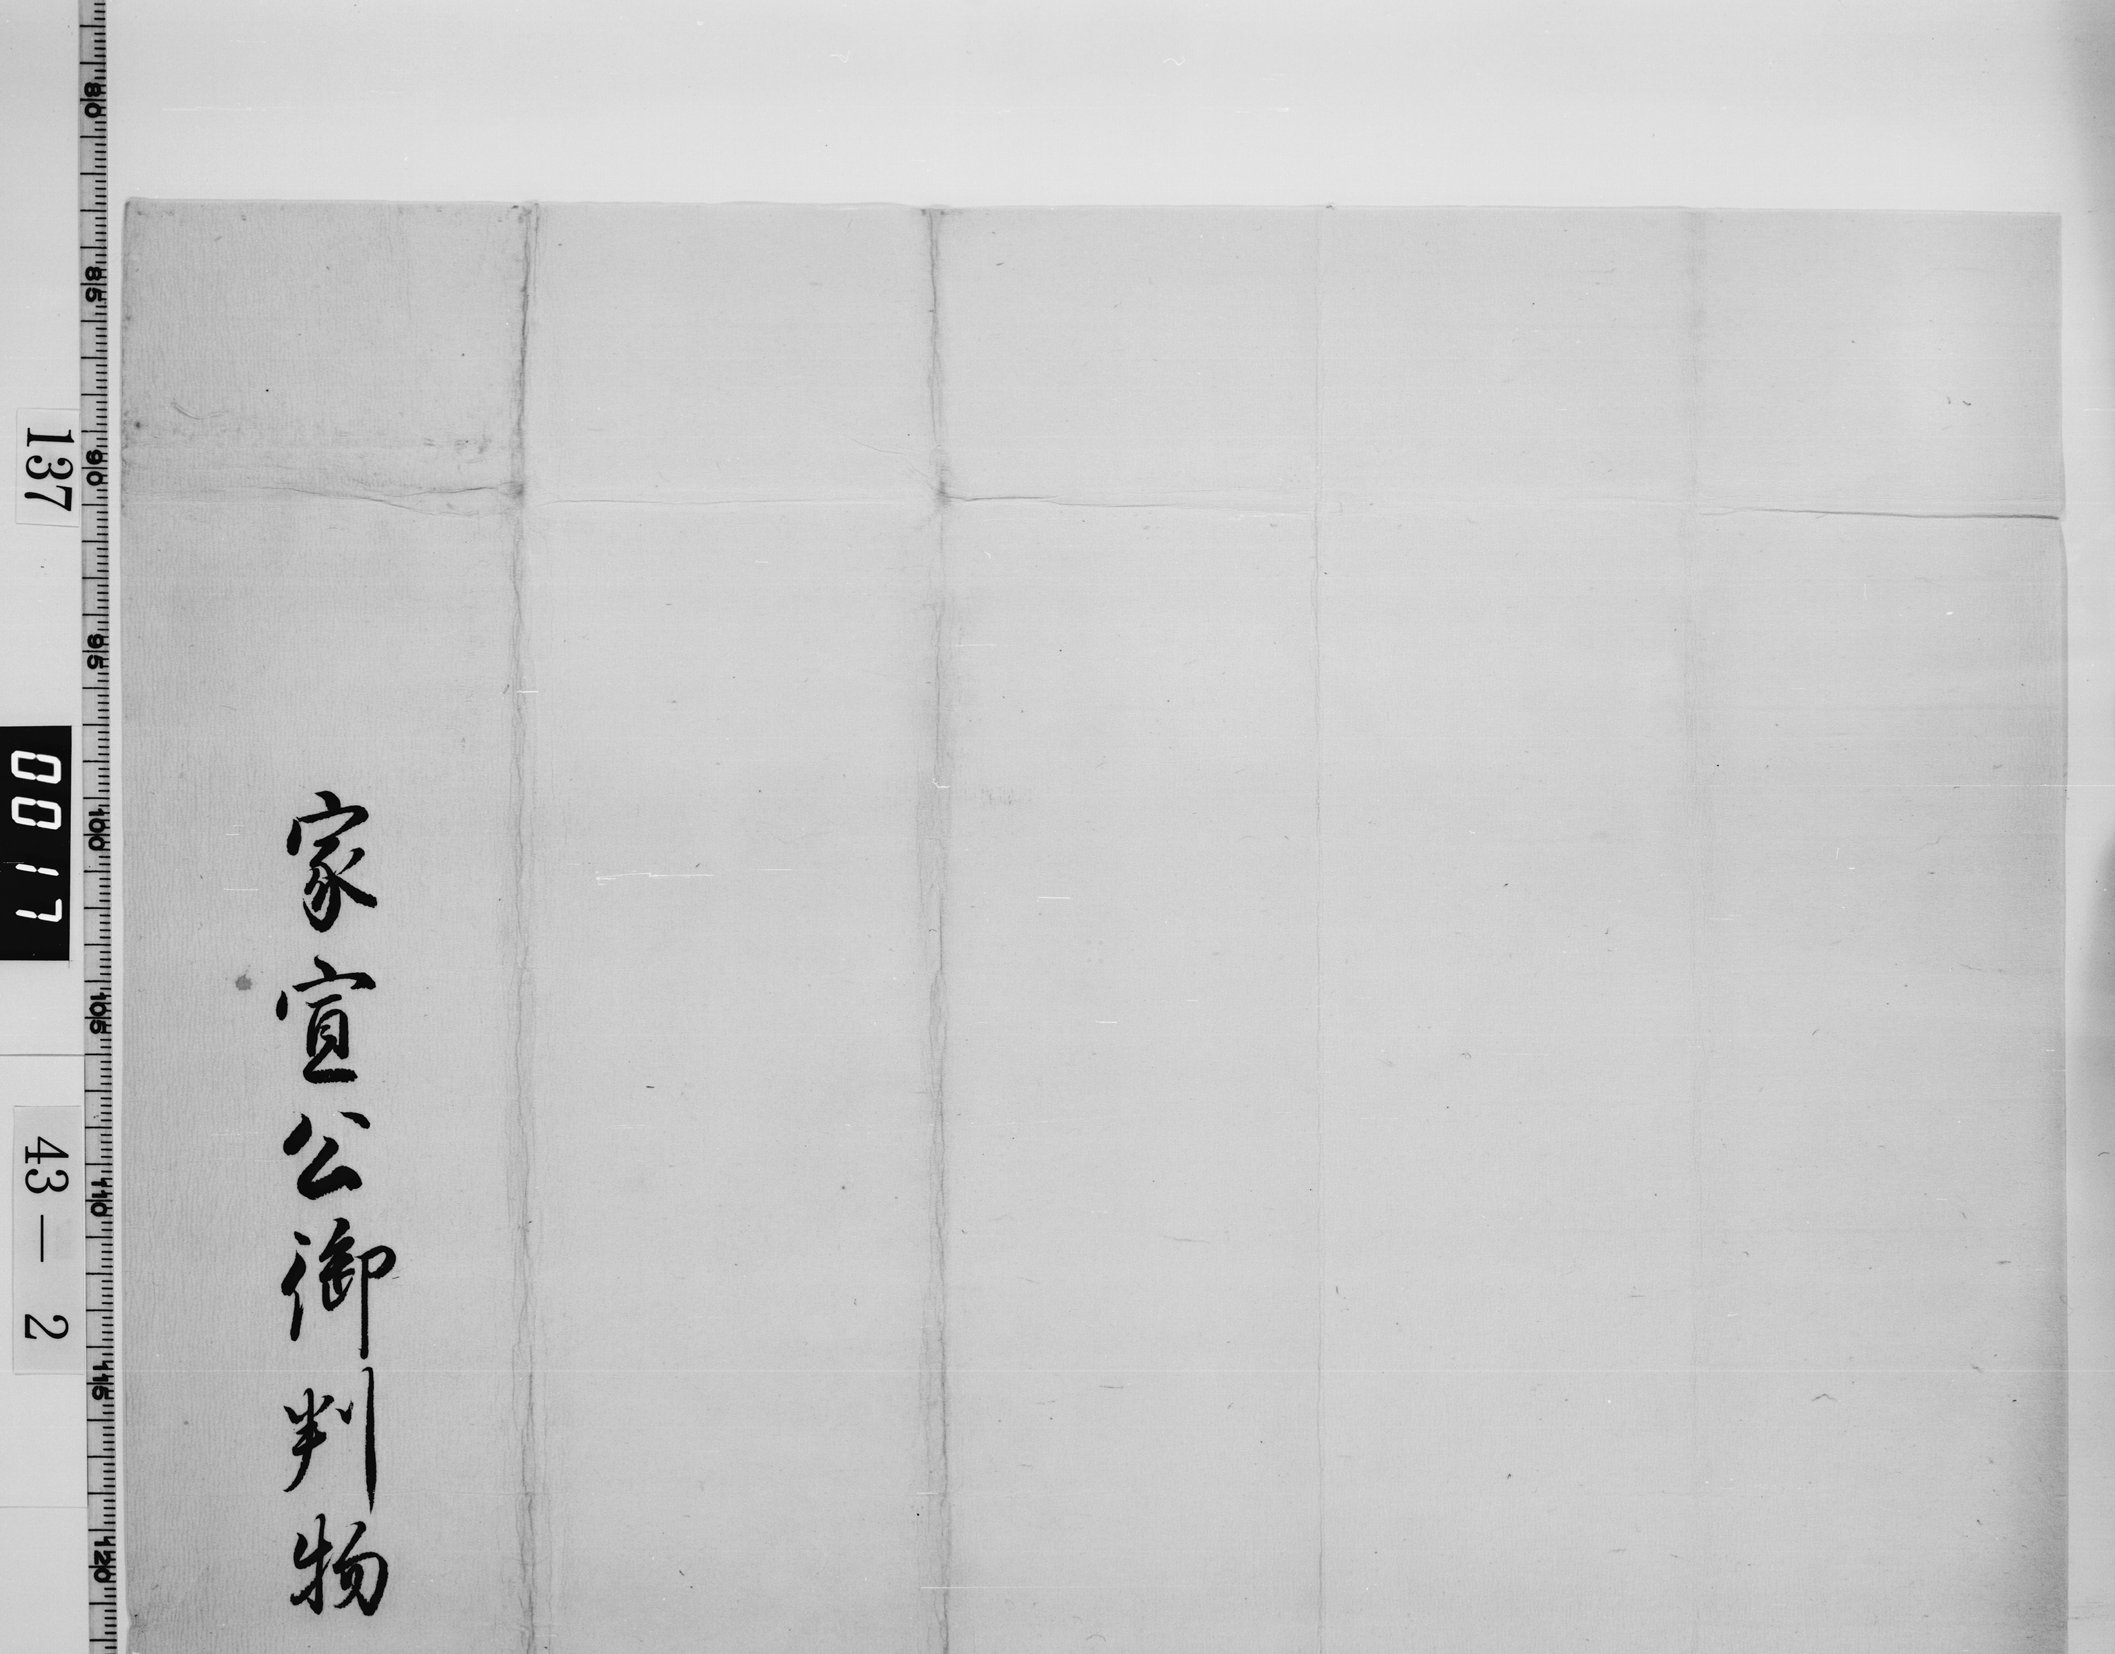 家宣公御判物
137
0017
43－2
80
85
90
95
100
105
110
115
120